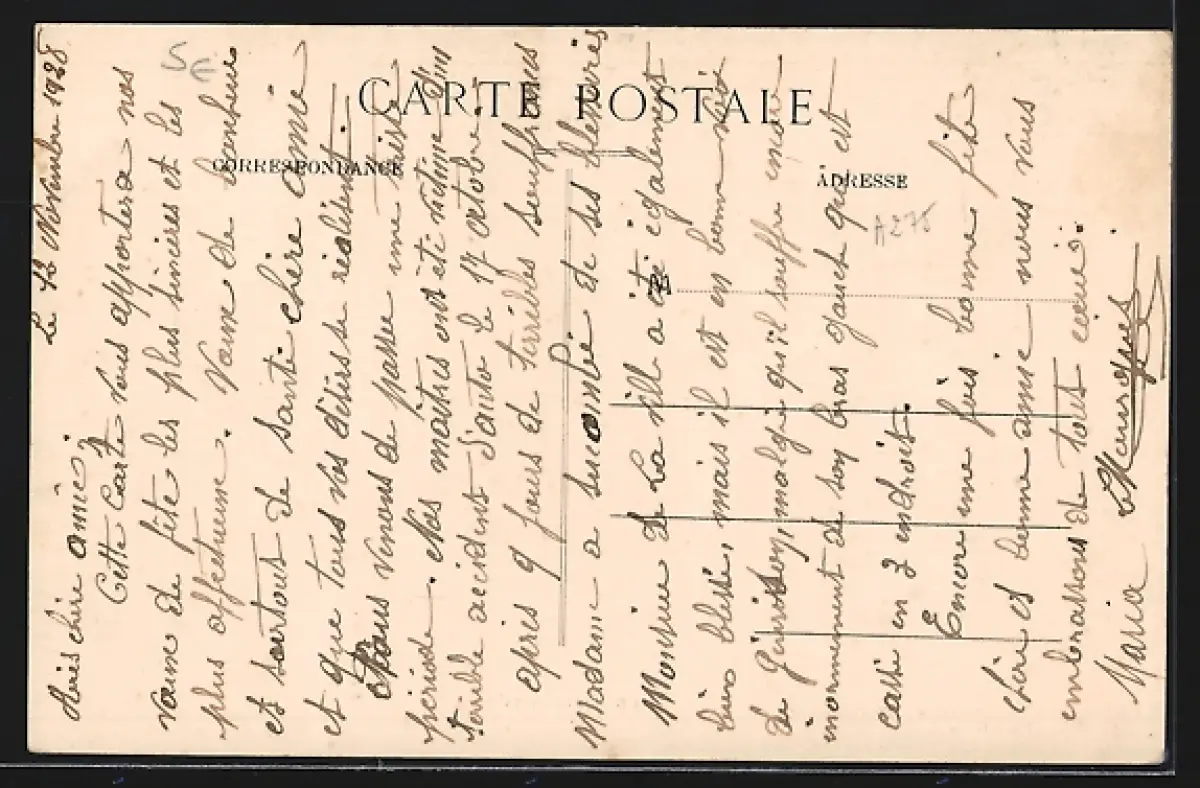 CARTE POSTALE
CORRESPONDANCE
ADRESSE
A275
Le 12 Novembre 1928
chère amie,
Cette Carte vous apportera nos
vœux de fête les plus sincères et les
plus affectueux. Vœux de bonheur
et sortout de santé chère amie
et que tous vos désirs se réalisent.
Nous venons de passer une triste
période. Nos maîtres ont été victime d'un
terrible accident d'auto le 17 octobre.
après 9 jours de terribles souffrances
Madame a succombé de ses blesures
Monsieur de La a été également
bien blessé, mais il est en bonne voie
de guérison, malgré qu'il souffre encore
énormement de son bras gauche qui est
cassé en 3 endroit.
Encore une fois bonne fête
chère et bonne amie nous vous
embrassons de tout cœur.
Maria